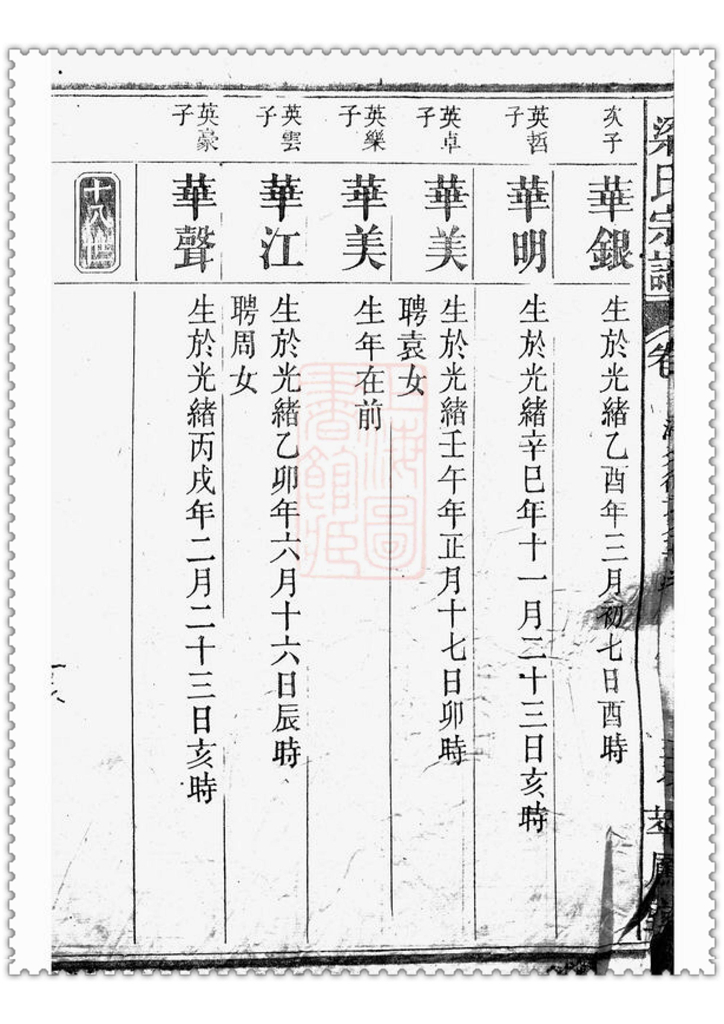 梁氏宗譜
卷
次子
華銀
生於光緒乙酉年三月初七日酉時
英哲子
華明
生於光緒辛巳年十一月二十三日亥時
英卓子
華美
生於光緒壬午年正月十七日卯時
聘袁女
英樂子
華美
生年在前
英雲子
華江
生於光緒乙卯年六月十六日辰時
聘周女
英豪子
華聲
生於光緒丙戌年二月二十三日亥時
十八世
上海圖
書館藏